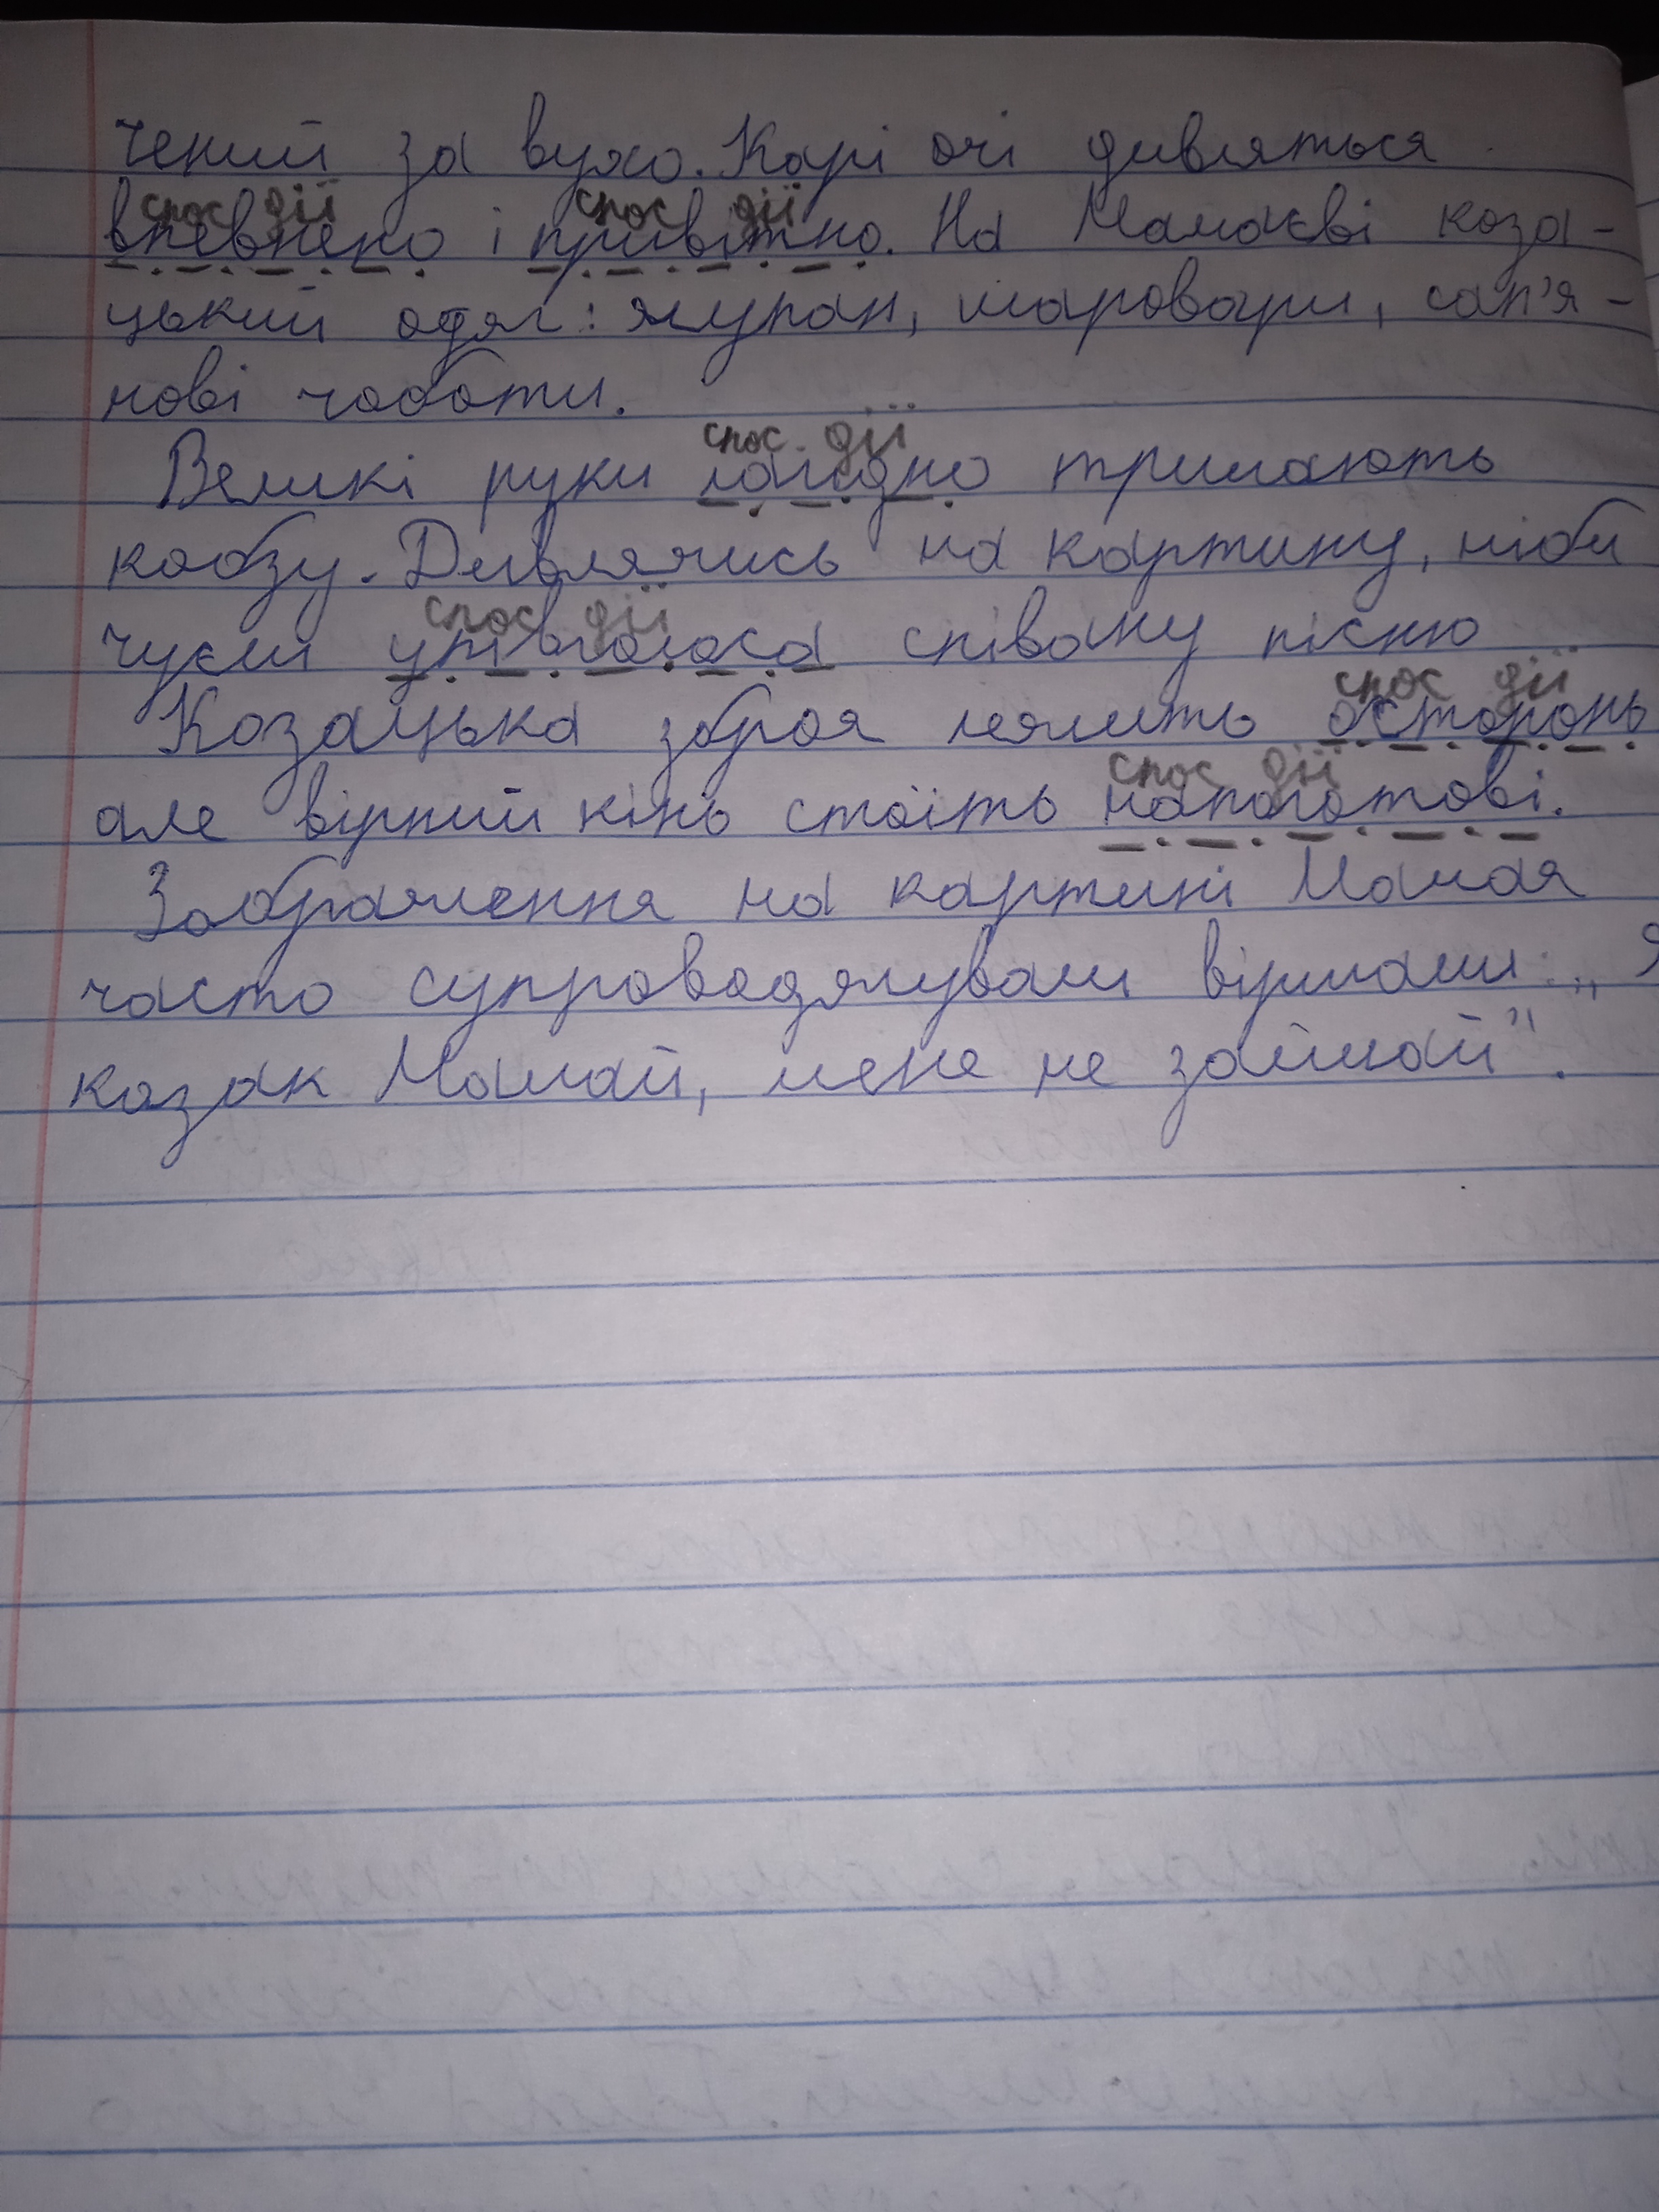 чений за вухо. Карі очі дивляться
спос дії спос дії
впевнено і привітно. На Мамаєві коза-
цький одяг: жупан, шаровари, сап'я-
нові чоботи.
спос. дії
Великі руки лагідно тримають
кобзу. Дивлячись на картину, ніби
спос дії
чуєш упівголоса співану пісню
спос дії
Козацька зброя лежить осторонь
спос дії
але вірний кінь стоїть напоготові.
Зображення на картині Мамая
часто супроводжували віршами: „Я
козак Мамай, мене не займай".